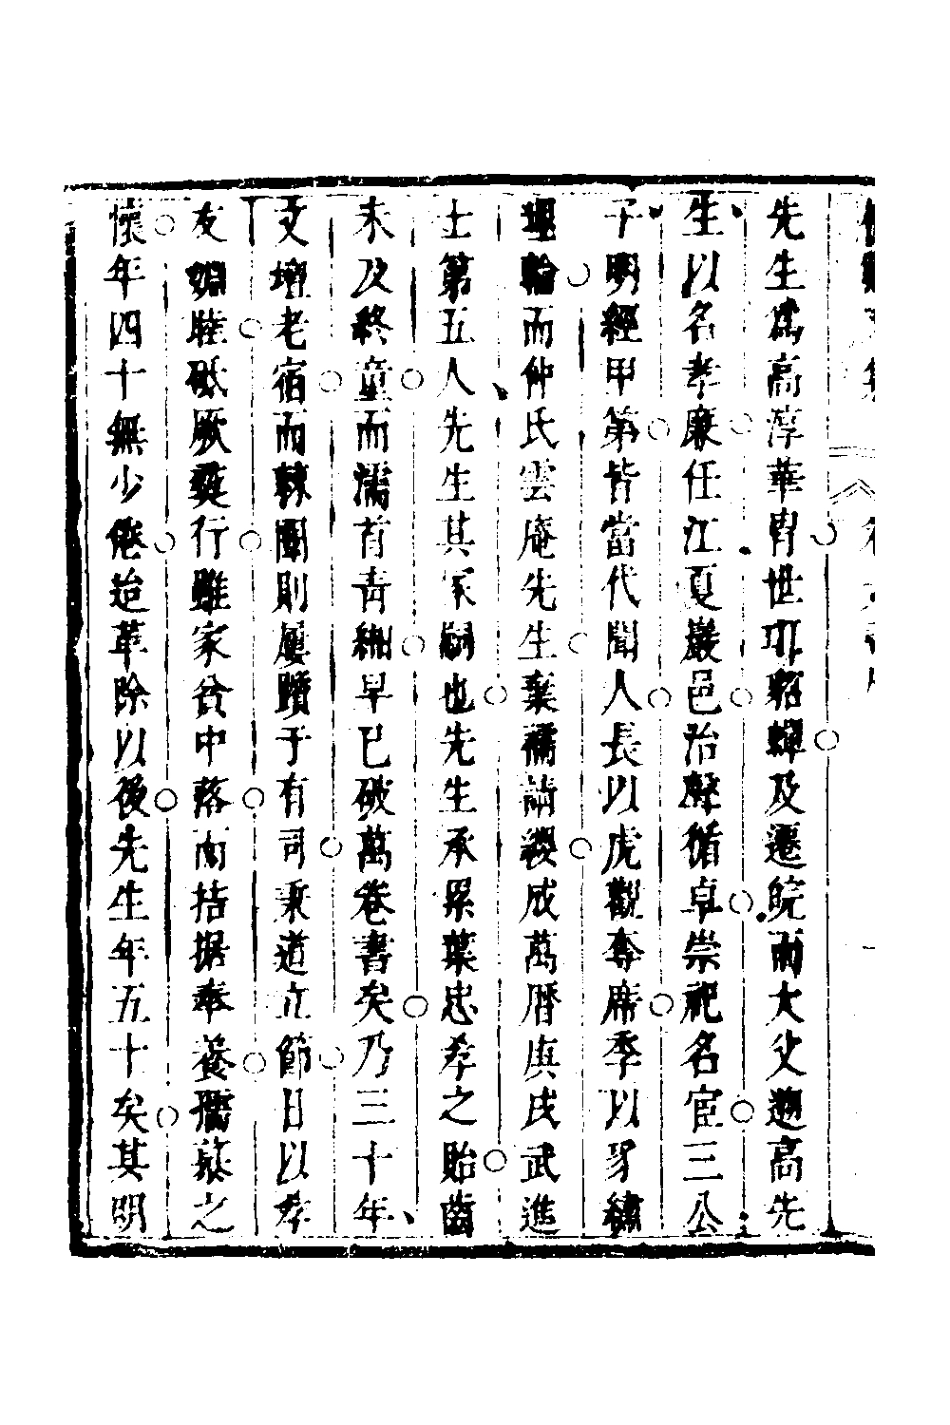 先生為高淳華胄世珥貂蟬及遷皖而大父遡高先
生以名孝廉任江夏巖邑治聲循卓崇祀名宦三公
子明經甲第皆當代聞人長以虎觀奪席季以豸繡
埋輪而仲氏雲庵先生棄襦請纓成萬曆庚戌武進
士第五人先生其冢嗣也先生承累葉忠孝之貽齒
未及終童而濡首靑緗早已破萬卷書矣乃三十年
文壇老宿而棘闈則屢躓于有司秉道立節日以孝
友婣睦砥厥彝行雖家貧中落而拮据奉養孺慕之
懷年四十無少倦迨革除以後先生年五十矣其明